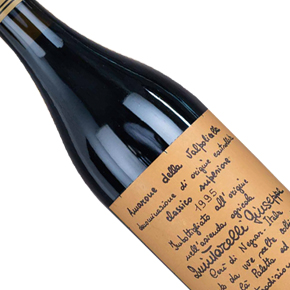 Amarone della Valpolicella
denominazione di origine controllata
classico superiore
1995
Imbottigliato all'origine
nell'azienda agricola
Quintarelli Giuseppe
Cerè di Negrar - Italia
da uve molto
la Paletta ed